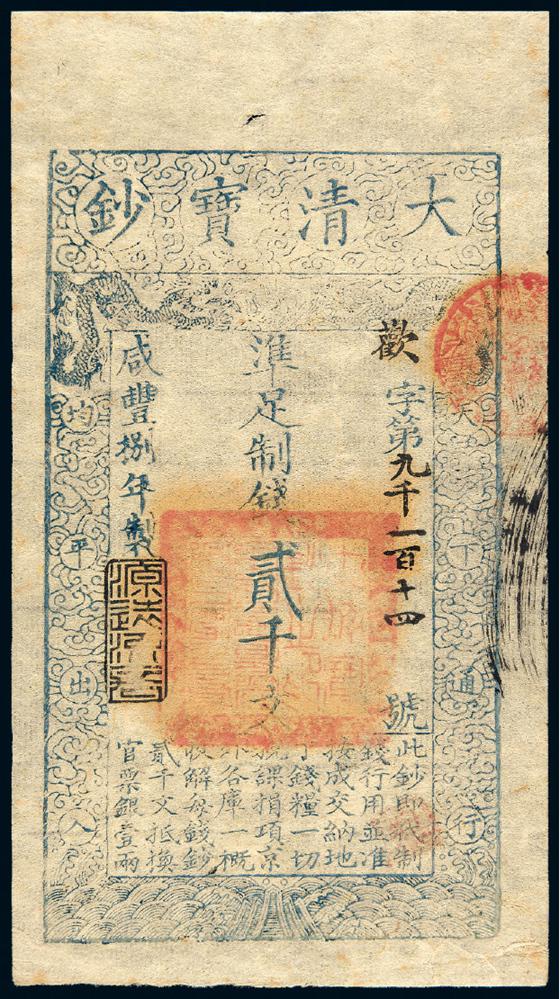 大清寶鈔
天下通行
歡字第九千一百十四號
準足制錢貳千文
咸豐捌年製
均平出入
源遠流長
此鈔即代制
錢行用並准
按成交納地
丁錢糧一切
稅課捐項京
外各庫一概
收解每錢鈔
貳千文抵換
官票銀壹兩